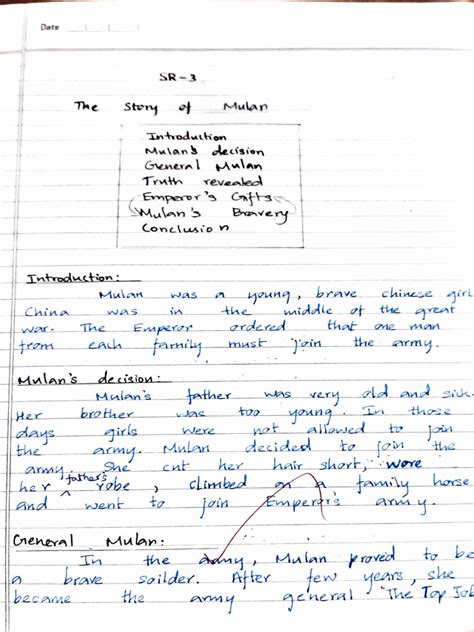 Date
SR-3
The Story of Mulan
Introduction
Mulan's decision
General Mulan
Truth revealed
Emperor's Gifts
Mulan's Bravery
Conclusion
Introduction:
Mulan was a young, brave chinese girl
China was in the middle of the great
war. The Emperor ordered that one man
from each family must join the army.
Mulan's decision:
Mulan's father was very old and sick.
Her brother was too young. In those
days girls were not allowed to join
the army. Mulan decided to join the
army. She cut her hair short, wore
her father's robe, climbed on a family horse
and went to join Emperor's army.
General Mulan:
In the army, Mulan proved to be
a brave soilder. After few years, she
became the army general The Top Job